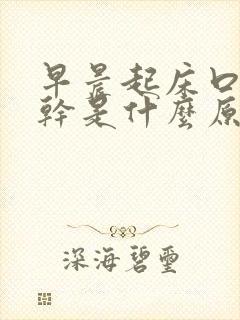 早晨起床口
幹是什麼原
深海碧璽